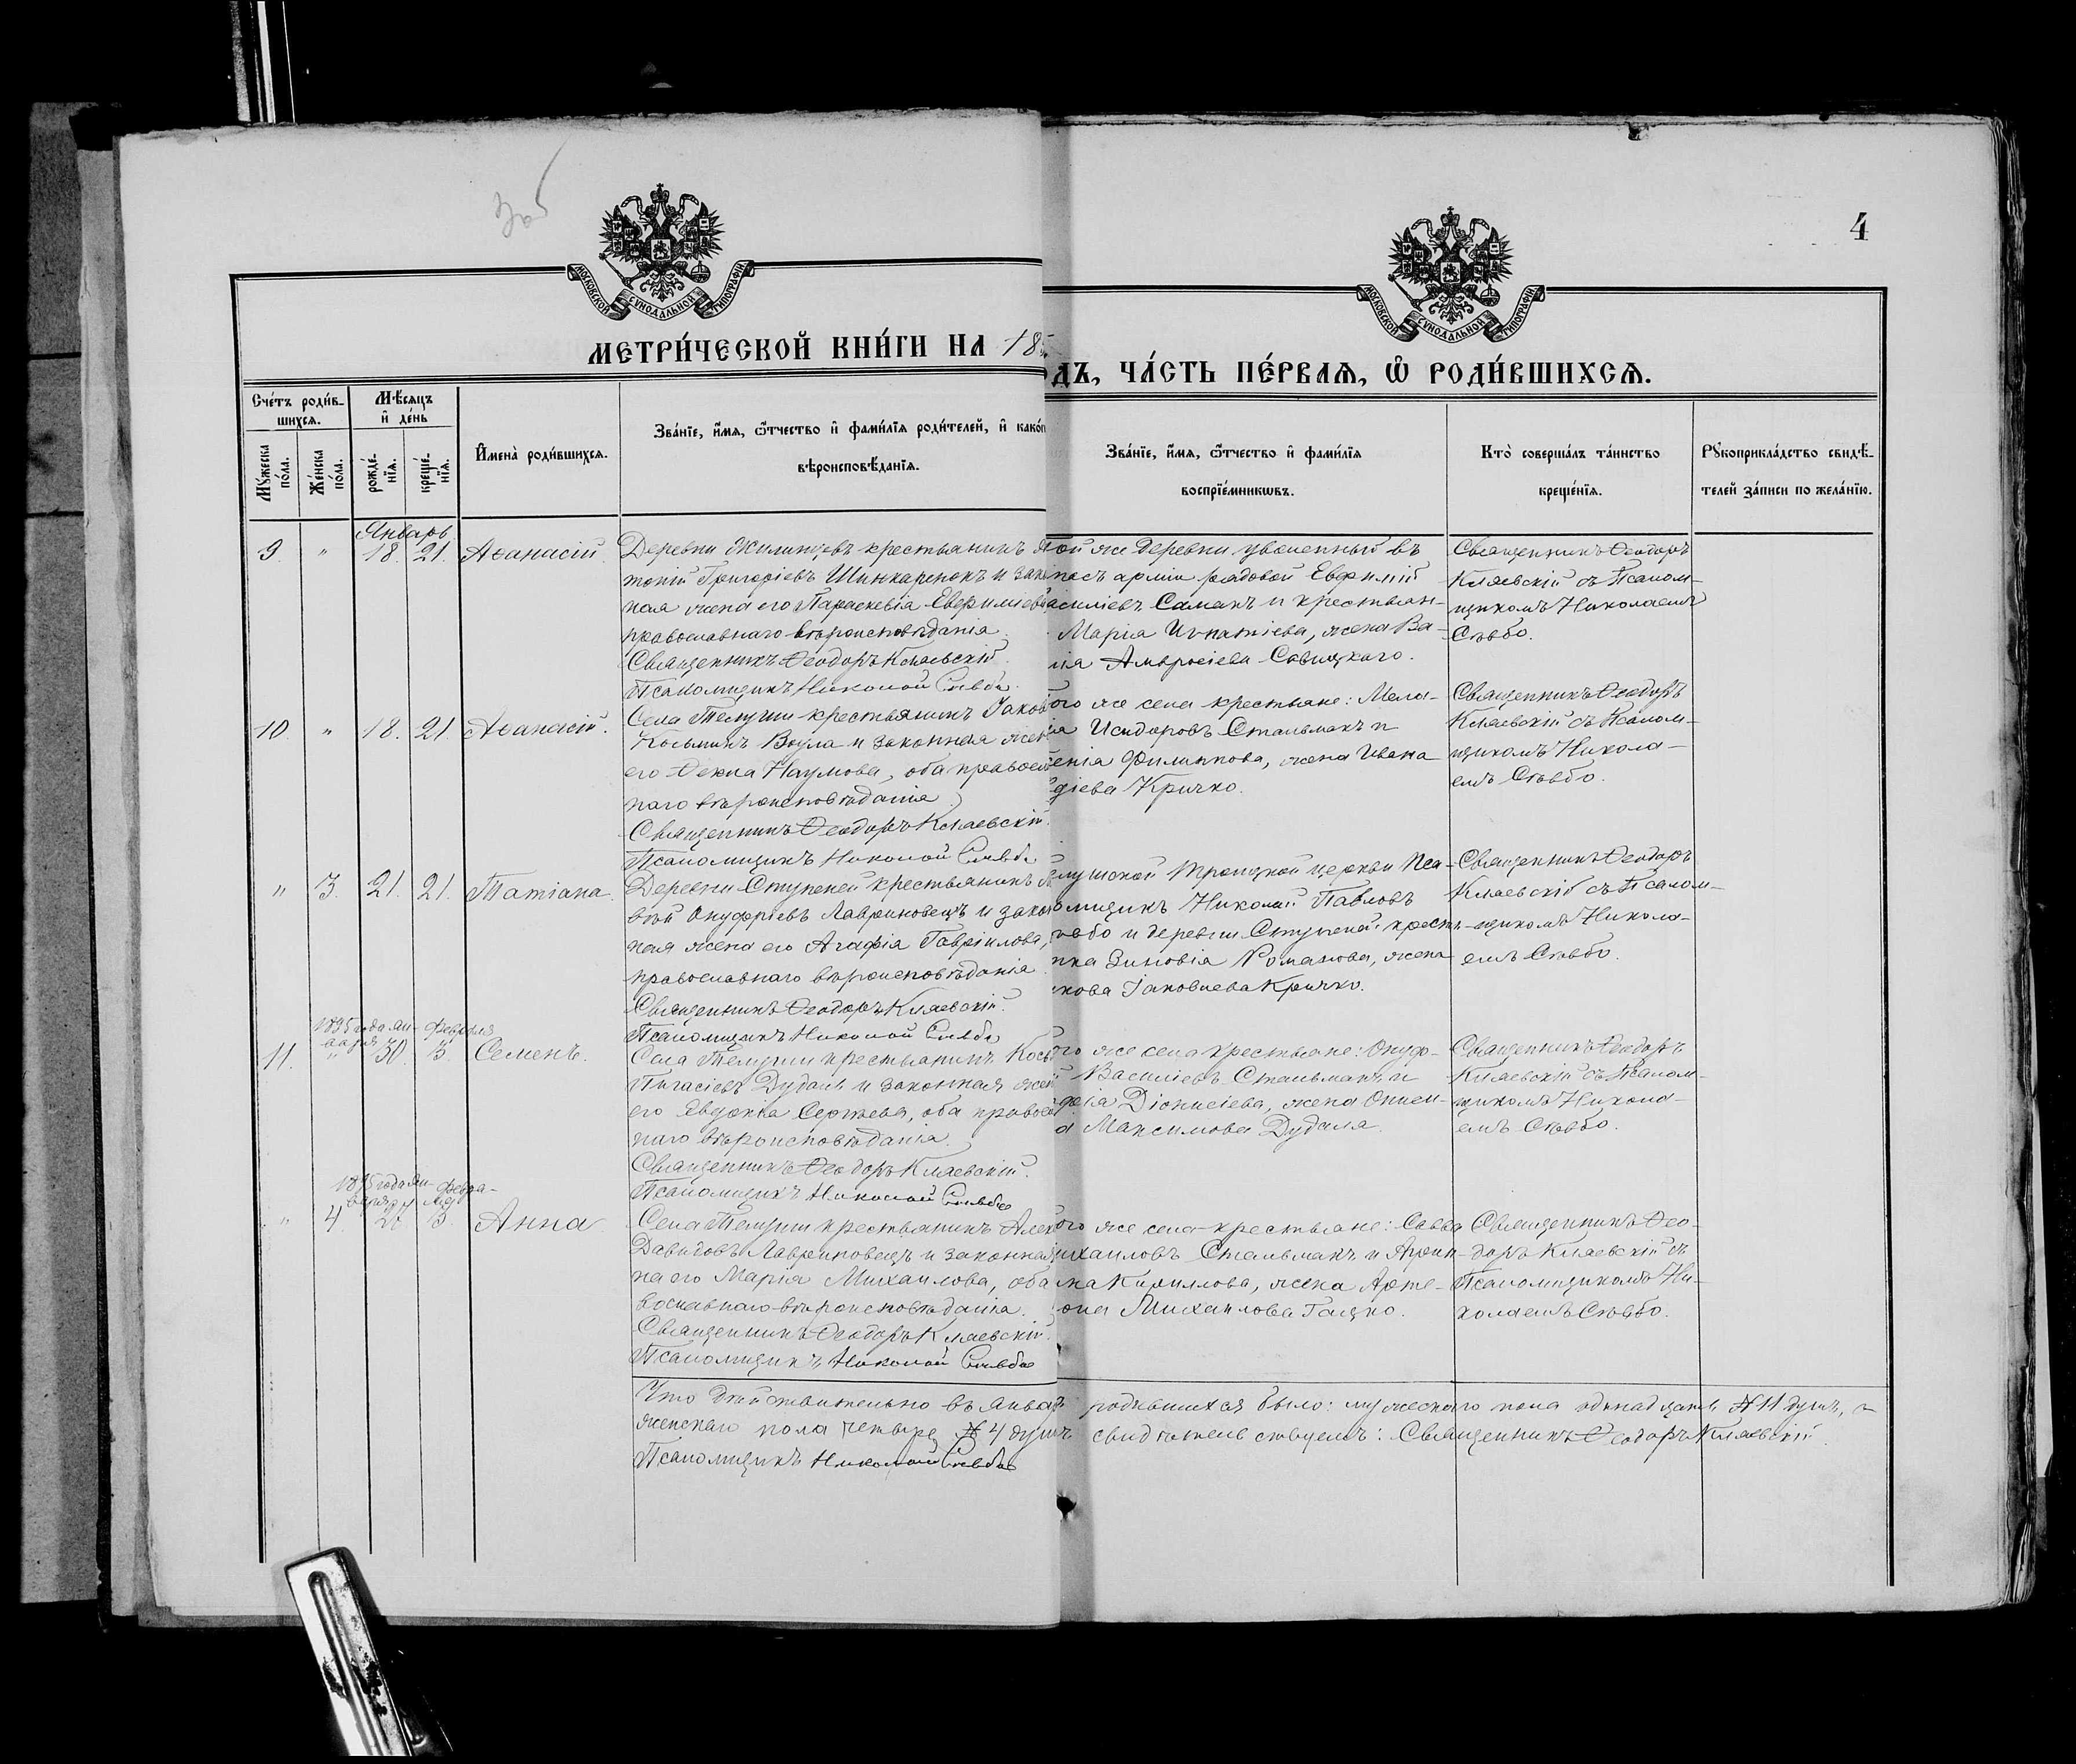 4
МОСКОВСКОЙ СУНОДАЛЬНОЙ ТИПОГРАФІИ
МОСКОВСКОЙ СУНОДАЛЬНОЙ ТИПОГРАФІИ
МЕТРИ́ЧЕСКОЙ КНИ́ГИ НА 18
ДЪ, ЧА́СТЬ ПЕ́РВАЯ, Ѡ РОДИ́ВШИХСЯ.
Сче́тъ роди́в-
шихся.
Мѣсяцъ
и де́нь
Му́жеска по́ла.
Же́нска по́ла.
рожде́-
нїя.
креще́-
нїя.
И́мена̀ роди́вшихся.
Зва́нїе, и́мя, ѻ́тчество и фами́лїя роди́телей, и како́
вѣроисповѣ́данїя.
Зва́нїе, и́мя, ѻ́тчество и фами́лїя
воспрїе́мникѡвъ.
Кто̀ соверша́лъ та́инство
креще́нїя.
Рꙋкоприкла́дство свидѣ́-
телей за́писи по жела́нїю.
Январь
9. " 18. 21. Аѳанасій.
Деревни Жилинцевъ крестьянинъ
тоній Григоріевъ Шинкаренокъ и зак
ная жена его Параскевія Евфиміев
православнаго вѣроисповѣданія.
Священникъ Ѳеодоръ Кляевскій.
Псаломщикъ Николай Сѣвбо
ой же деревни уволенный въ
пасъ арміи рядовой Евфимій
асиліевъ Саманъ и крестьян-
Марія Игнатіева, жена Ва-
лія Амвросіева Савицкаго.
Священникъ Ѳеодоръ
Кляевскій съ Псалом-
щикомъ Николаемъ
Сѣвбо.
10. " 18. 21. Аѳанасій.
Села Телуши крестьянинъ Іаков
Косьминъ Воула и законная жен
его Ѳекла Наумова, оба правосл
наго вѣроисповѣданія
Священникъ Ѳеодоръ Кляевскій.
Псаломщикъ Николай Сѣвбо
ого же села крестьяне: Мела-
ія Исидоровъ Стальмахъ и
енія Филиппова, жена Ивана
діева Кричко.
Священникъ Ѳеодоръ
Кляевскій съ Псалом-
щикомъ Никола-
емъ Сѣвбо.
" 3. 21. 21. Татіана.
Деревни Ступеней крестьянинъ
вѣй Онуфріевъ Лавриновецъ и закон
ная жена его Агафія Гавріилова,
православнаго вѣроисповѣданія
Священникъ Ѳеодоръ Кляевскій.
Псаломщикъ Николай Сѣвбо
лушской Троицкой церкви Пса-
омщикъ Николай Павловъ
ѣвбо и деревни Ступеней крестья-
нка Зиновія Романова, жена
кова Іаковлева Кричко.
Священникъ Ѳеодоръ
Кляевскій съ Псалом-
щикомъ Никола-
емъ Сѣвбо.
1895 года ян-
варя
Февраля
11. " 30. 3. Семенъ.
Села Телуши крестьянинъ Кось
Пигасіевъ Дудаль и законная жен
его Евдокія Сергѣева, оба правосл
наго вѣроисповѣданія.
Священникъ Ѳеодоръ Кляевскій.
Псаломщикъ Николай Сѣвбо
ого же села крестьяне: Онуф-
Василіевъ Стальмахъ и
фія Діонисіева, жена Онисим-
а Максимова Дудаля.
Священникъ Ѳеодоръ
Кляевскій съ Псалом-
щикомъ Никола-
емъ Сѣвбо.
1895 года ян-
варя
Февра-
ля
" 4 27 3. Анна
Села Телуши крестьянинъ Алек
Давидовъ Лавриновецъ и законная
на его Марія Михаилова, оба
вославнаго вѣроисповѣданія.
Священникъ Ѳеодоръ Кляевскій.
Псаломщикъ Николай Сѣвбо
ого же села крестьяне: Савва
ихаиловъ Стальмахъ и Ирин-
на Кириллова, жена Арте-
она Михаилова Гацко.
Священникъ Ѳео-
доръ Кляевскій съ
Псаломщикомъ Ни-
колаемъ Сѣвбо.
Что дѣйствительно въ январѣ родившихся было: мужескаго пола одинадцать 11 душъ, и
женскаго пола четыре 4 душъ свидѣтельствуемъ: Священникъ Ѳеодоръ Кляевскій.
Псаломщикъ Николай Сѣвбо